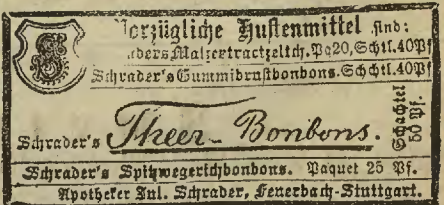 Vorzügliche Hustenmittel sind:
Schraders Malzextractzeltch. Pq20, Schtl. 40Pf
Schrader's Gummibrustbonbons. Schchtl. 40Pf
Schrader's Theer-Bonbons. Schachtel 50 Pf.
Schrader's Spitzwegerichbonbons. Paquet 25 Pf.
Apotheker Jul. Schrader, Feuerbach-Stuttgart.